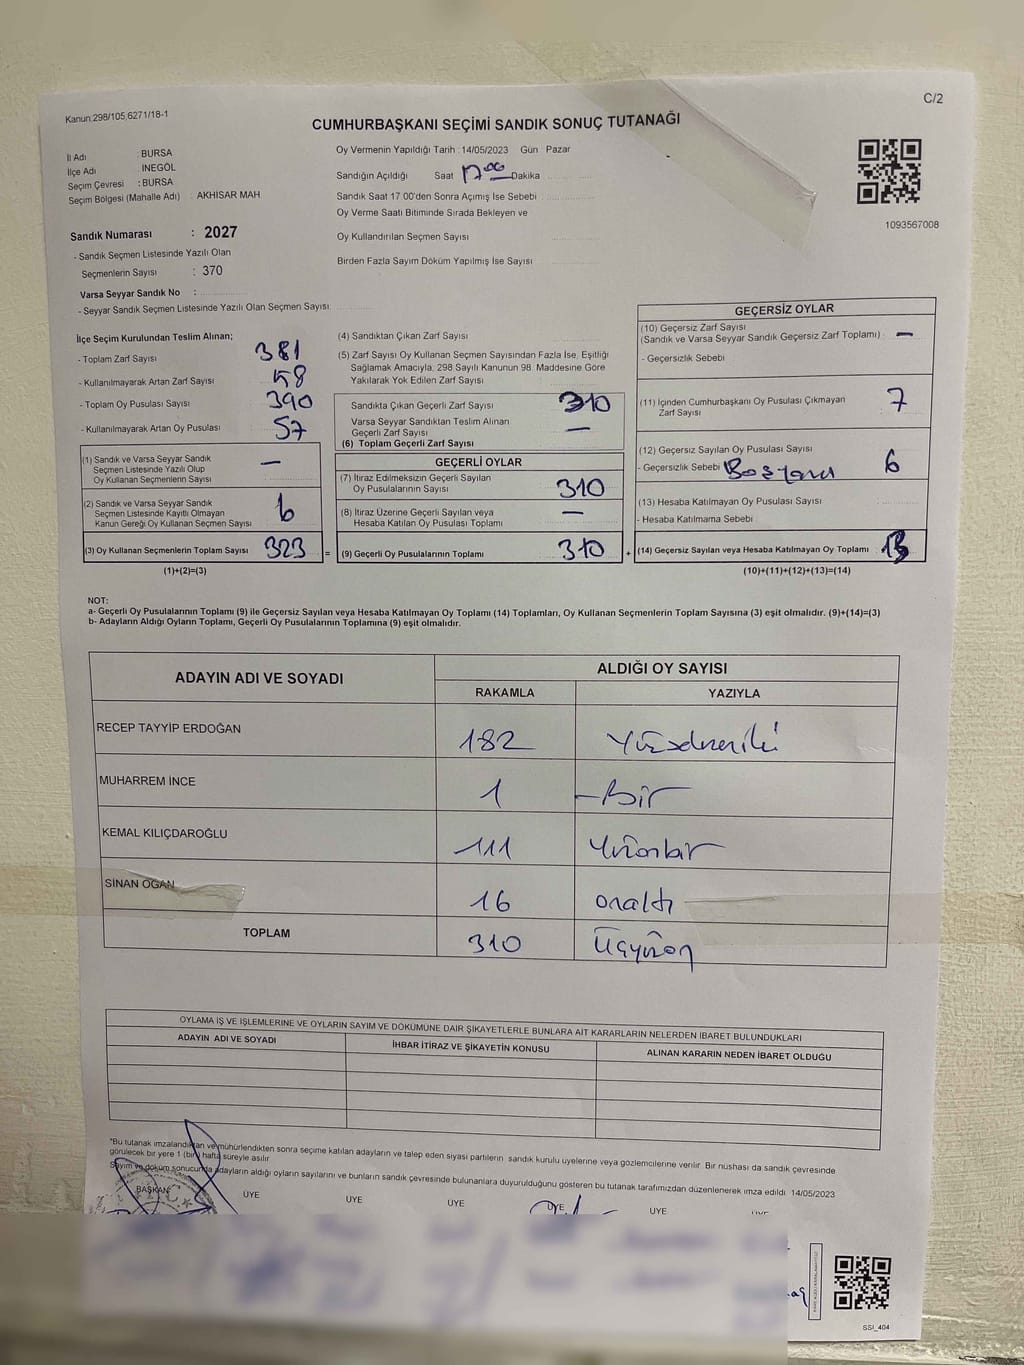 C/2
Kanun,298/105,6271/18-1
CUMHURBAŞKANI SEÇİMİ SANDIK SONUÇ TUTANAĞI
İl Adı : BURSA
İlçe Adı : İNEGÖL
Seçim Çevresi : BURSA
Seçim Bölgesi (Mahalle Adı) : AKHİSAR MAH
Oy Vermenin Yapıldığı Tarih : 14/05/2023 Gün : Pazar
Sandığın Açıldığı Saat 17 00 Dakika
Sandık Saat 17.00'den Sonra Açımış İse Sebebi
Oy Verme Saati Bitiminde Sırada Bekleyen ve
Oy Kullandırılan Seçmen Sayısı
Birden Fazla Sayım Döküm Yapılmış İse Sayısı
1093567008
Sandık Numarası : 2027
- Sandık Seçmen Listesinde Yazılı Olan
Seçmenlerin Sayısı : 370
Varsa Seyyar Sandık No :
- Seyyar Sandık Seçmen Listesinde Yazılı Olan Seçmen Sayısı:
İlçe Seçim Kurulundan Teslim Alınan;
- Toplam Zarf Sayısı 381
- Kullanılmayarak Artan Zarf Sayısı 58
- Toplam Oy Pusulası Sayısı 390
- Kullanılmayarak Artan Oy Pusulası 57
(1) Sandık ve Varsa Seyyar Sandık
Seçmen Listesinde Yazılı Olup
Oy Kullanan Seçmenlerin Sayısı —
(2) Sandık ve Varsa Seyyar Sandık
Seçmen Listesinde Kayıtlı Olmayan
Kanun Gereği Oy Kullanan Seçmen Sayısı 6
(3) Oy Kullanan Seçmenlerin Toplam Sayısı 323
(1)+(2)=(3)
(4) Sandıktan Çıkan Zarf Sayısı
(5) Zarf Sayısı Oy Kullanan Seçmen Sayısından Fazla İse, Eşitliği
Sağlamak Amacıyla, 298 Sayılı Kanunun 98. Maddesine Göre
Yakılarak Yok Edilen Zarf Sayısı
Sandıkta Çıkan Geçerli Zarf Sayısı 310
Varsa Seyyar Sandıktan Teslim Alınan
Geçerli Zarf Sayısı —
(6) Toplam Geçerli Zarf Sayısı
GEÇERLİ OYLAR
(7) İtiraz Edilmeksizin Geçerli Sayılan
Oy Pusulalarının Sayısı 310
(8) İtiraz Üzerine Geçerli Sayılan veya
Hesaba Katılan Oy Pusulası Toplamı —
= (9) Geçerli Oy Pusulalarının Toplamı 310
GEÇERSİZ OYLAR
(10) Geçersiz Zarf Sayısı
(Sandık ve Varsa Seyyar Sandık Geçersiz Zarf Toplamı) : —
- Geçersizlik Sebebi
(11) İçinden Cumhurbaşkanı Oy Pusulası Çıkmayan
Zarf Sayısı 7
(12) Geçersiz Sayılan Oy Pusulası Sayısı
- Geçersizlik Sebebi 6
(13) Hesaba Katılmayan Oy Pusulası Sayısı
- Hesaba Katılmama Sebebi
+ (14) Geçersiz Sayılan veya Hesaba Katılmayan Oy Toplamı 13
(10)+(11)+(12)+(13)=(14)
NOT:
a- Geçerli Oy Pusulalarının Toplamı (9) ile Geçersiz Sayılan veya Hesaba Katılmayan Oy Toplamı (14) Toplamları, Oy Kullanan Seçmenlerin Toplam Sayısına (3) eşit olmalıdır. (9)+(14)=(3)
b- Adayların Aldığı Oyların Toplamı, Geçerli Oy Pusulalarının Toplamına (9) eşit olmalıdır.
ADAYIN ADI VE SOYADI
ALDIĞI OY SAYISI
RAKAMLA YAZIYLA
RECEP TAYYİP ERDOĞAN 182 Yüzsekseniki
MUHARREM İNCE 1 -Bir
KEMAL KILIÇDAROĞLU 111 Yüzonbir
SİNAN OĞAN 16 onaltı
TOPLAM 310 Üçyüzon
OYLAMA İŞ VE İŞLEMLERİNE VE OYLARIN SAYIM VE DÖKÜMÜNE DAİR ŞİKAYETLERLE BUNLARA AİT KARARLARIN NELERDEN İBARET BULUNDUKLARI
ADAYIN ADI VE SOYADI İHBAR İTİRAZ VE ŞİKAYETİN KONUSU ALINAN KARARIN NEDEN İBARET OLDUĞU
"Bu tutanak imzalandıktan ve mühürlendikten sonra seçime katılan adayların ve talep eden siyasi partilerin sandık kurulu üyelerine veya gözlemcilerine verilir. Bir nüshası da sandık çevresinde
görülecek bir yere 1 (bir) hafta süreyle asılır.
Sayım ve döküm sonucunda adayların aldığı oyların sayılarını ve bunların sandık çevresinde bulunanlara duyurulduğunu gösteren bu tutanak tarafımızdan düzenlenerek imza edildi. 14/05/2023
BAŞKAN ÜYE ÜYE ÜYE ÜYE ÜYE ÜYE
SSI_404